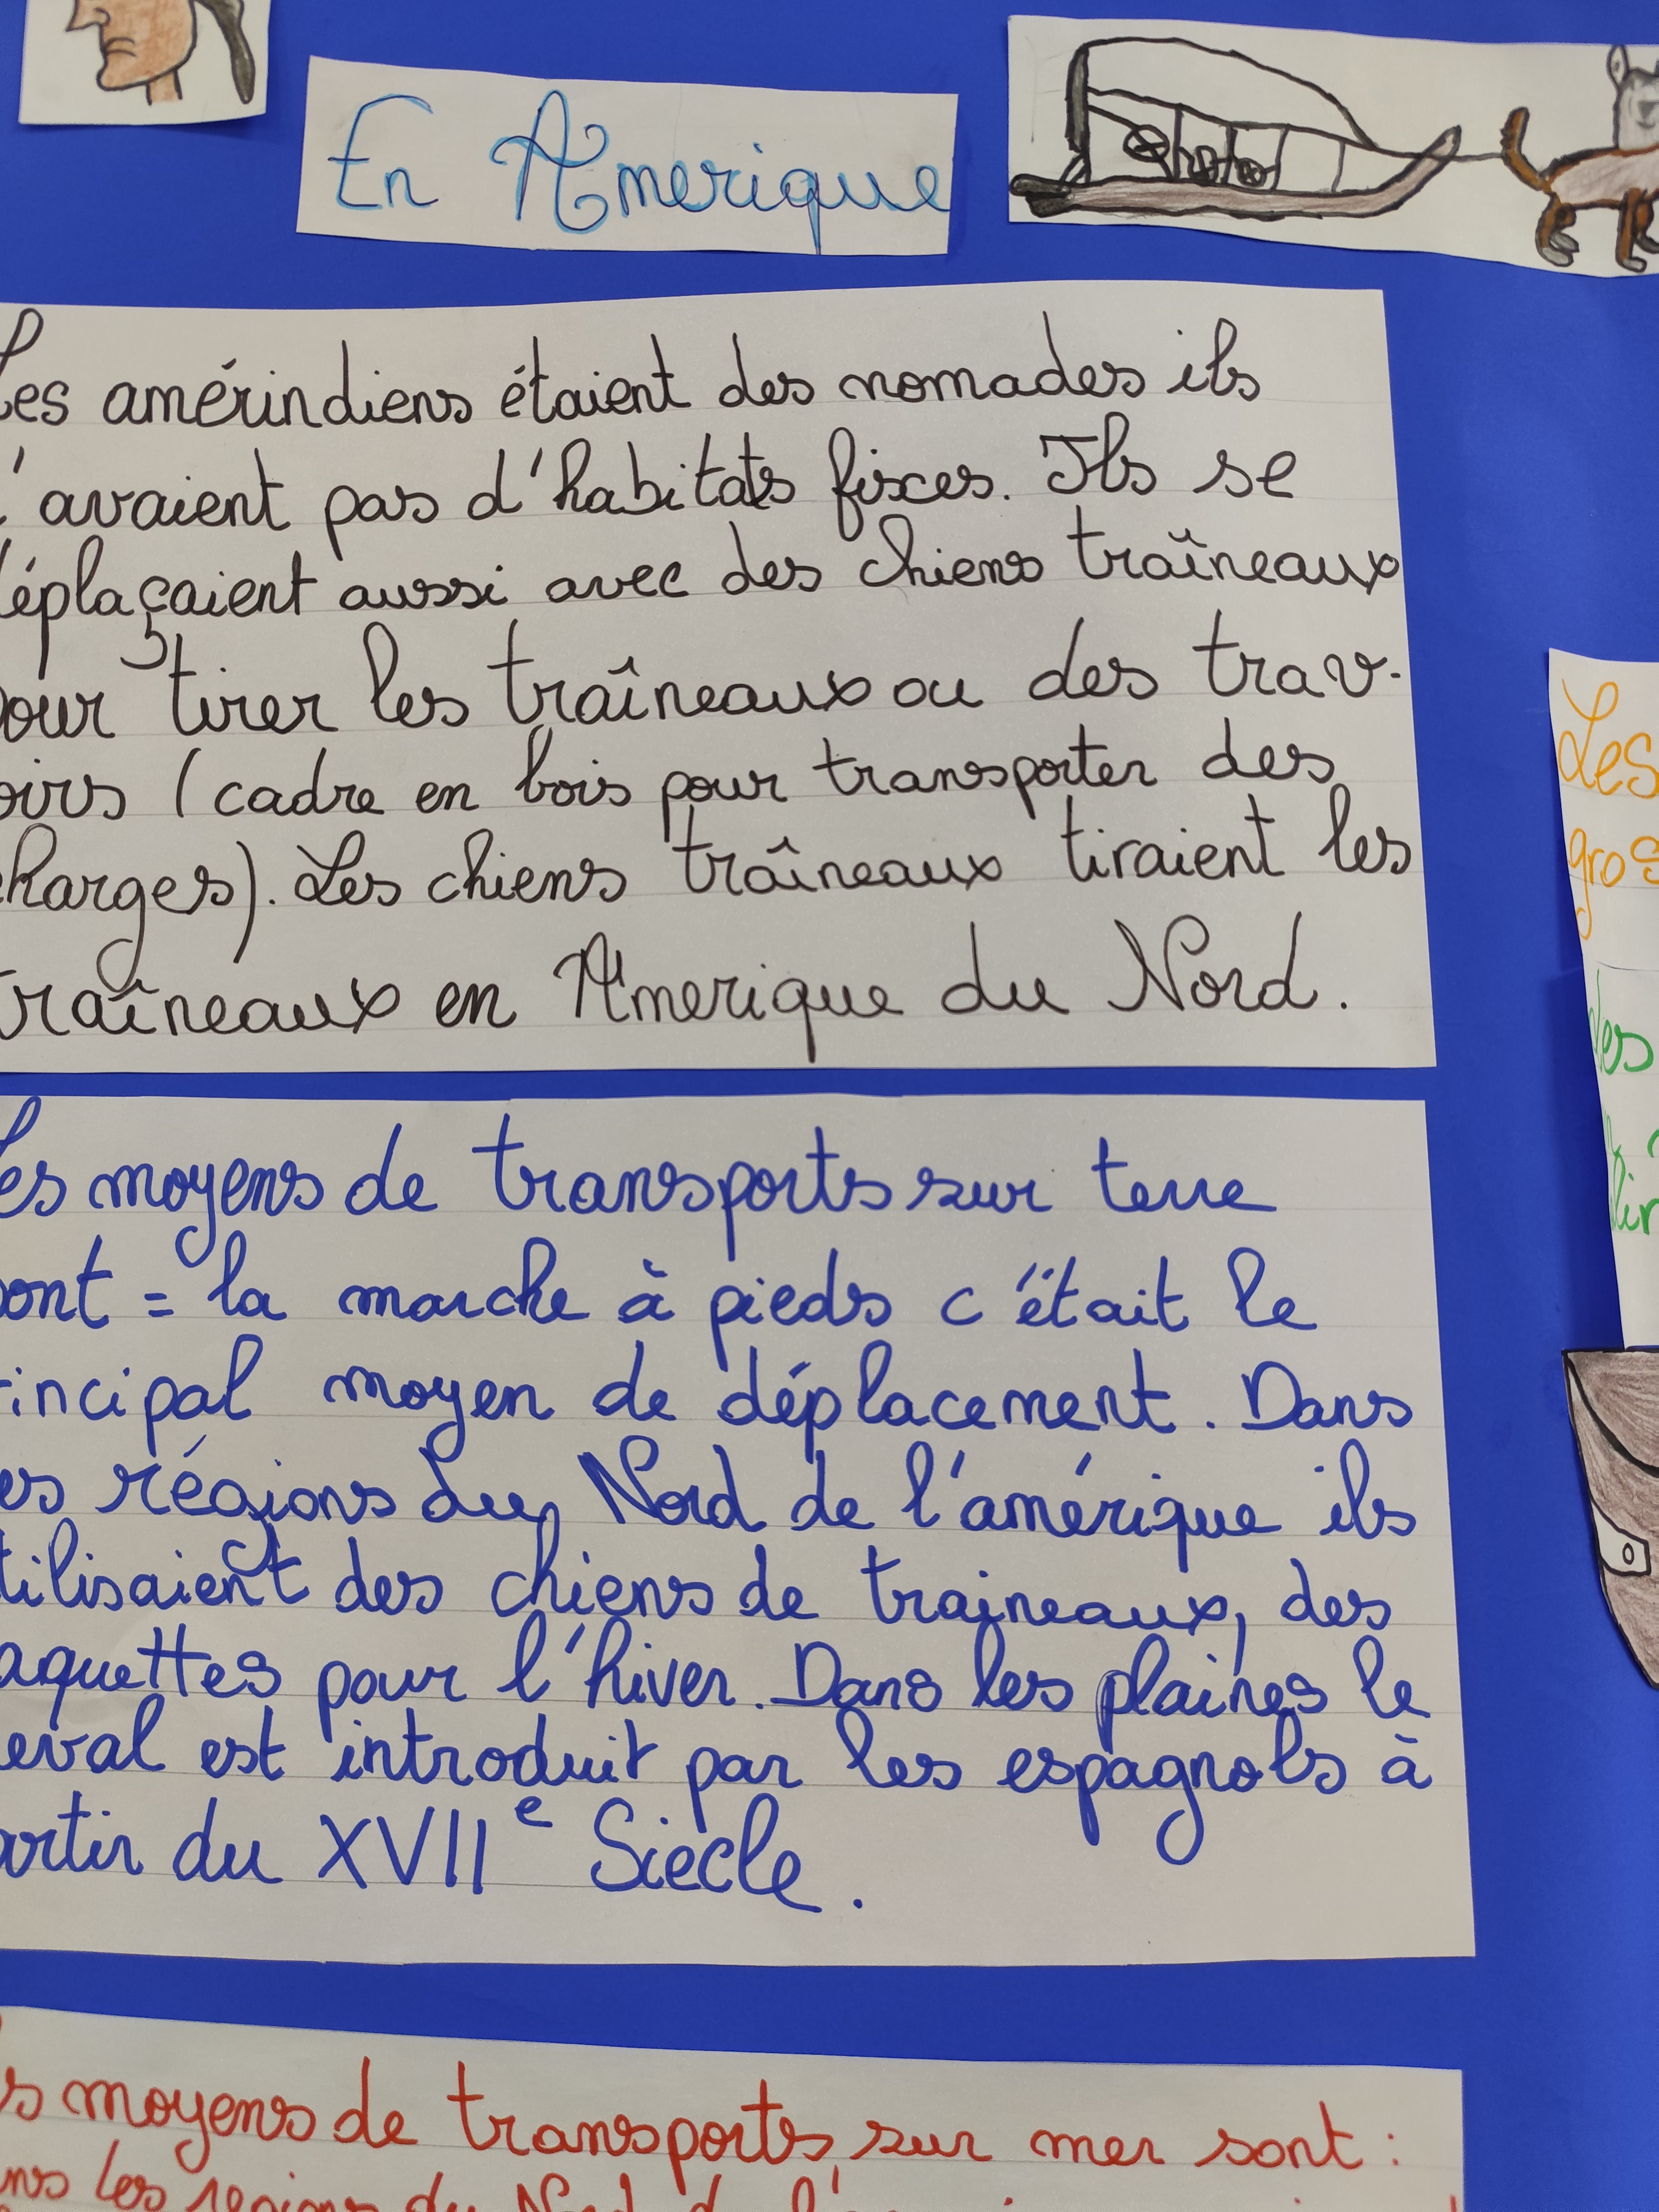 En Amerique
Les amérindiens étaient des nomades ils
n'avaient pas d'habitats fixces. Ils se
déplaçaient aussi avec des chiens traîneaux
pour tirer les traîneaux ou des trav-
oirs (cadre en bois pour transporter des
charges). Les chiens traîneaux tiraient les
traîneaux en Amerique du Nord.
Les moyens de transports sur terre
sont = la marche à pieds c'était le
rincipal moyen de déplacement. Dans
es régions du Nord de l'amérique ils
tilisaient des chiens de traineaux, des
aquettes pour l'hiver. Dans les plaines le
eval est introduit par les espagnols à
artir du XVIIe Siecle.
s moyens de transports sur mer sont :
ns les régions du Nord de l'a
Les
gros
les